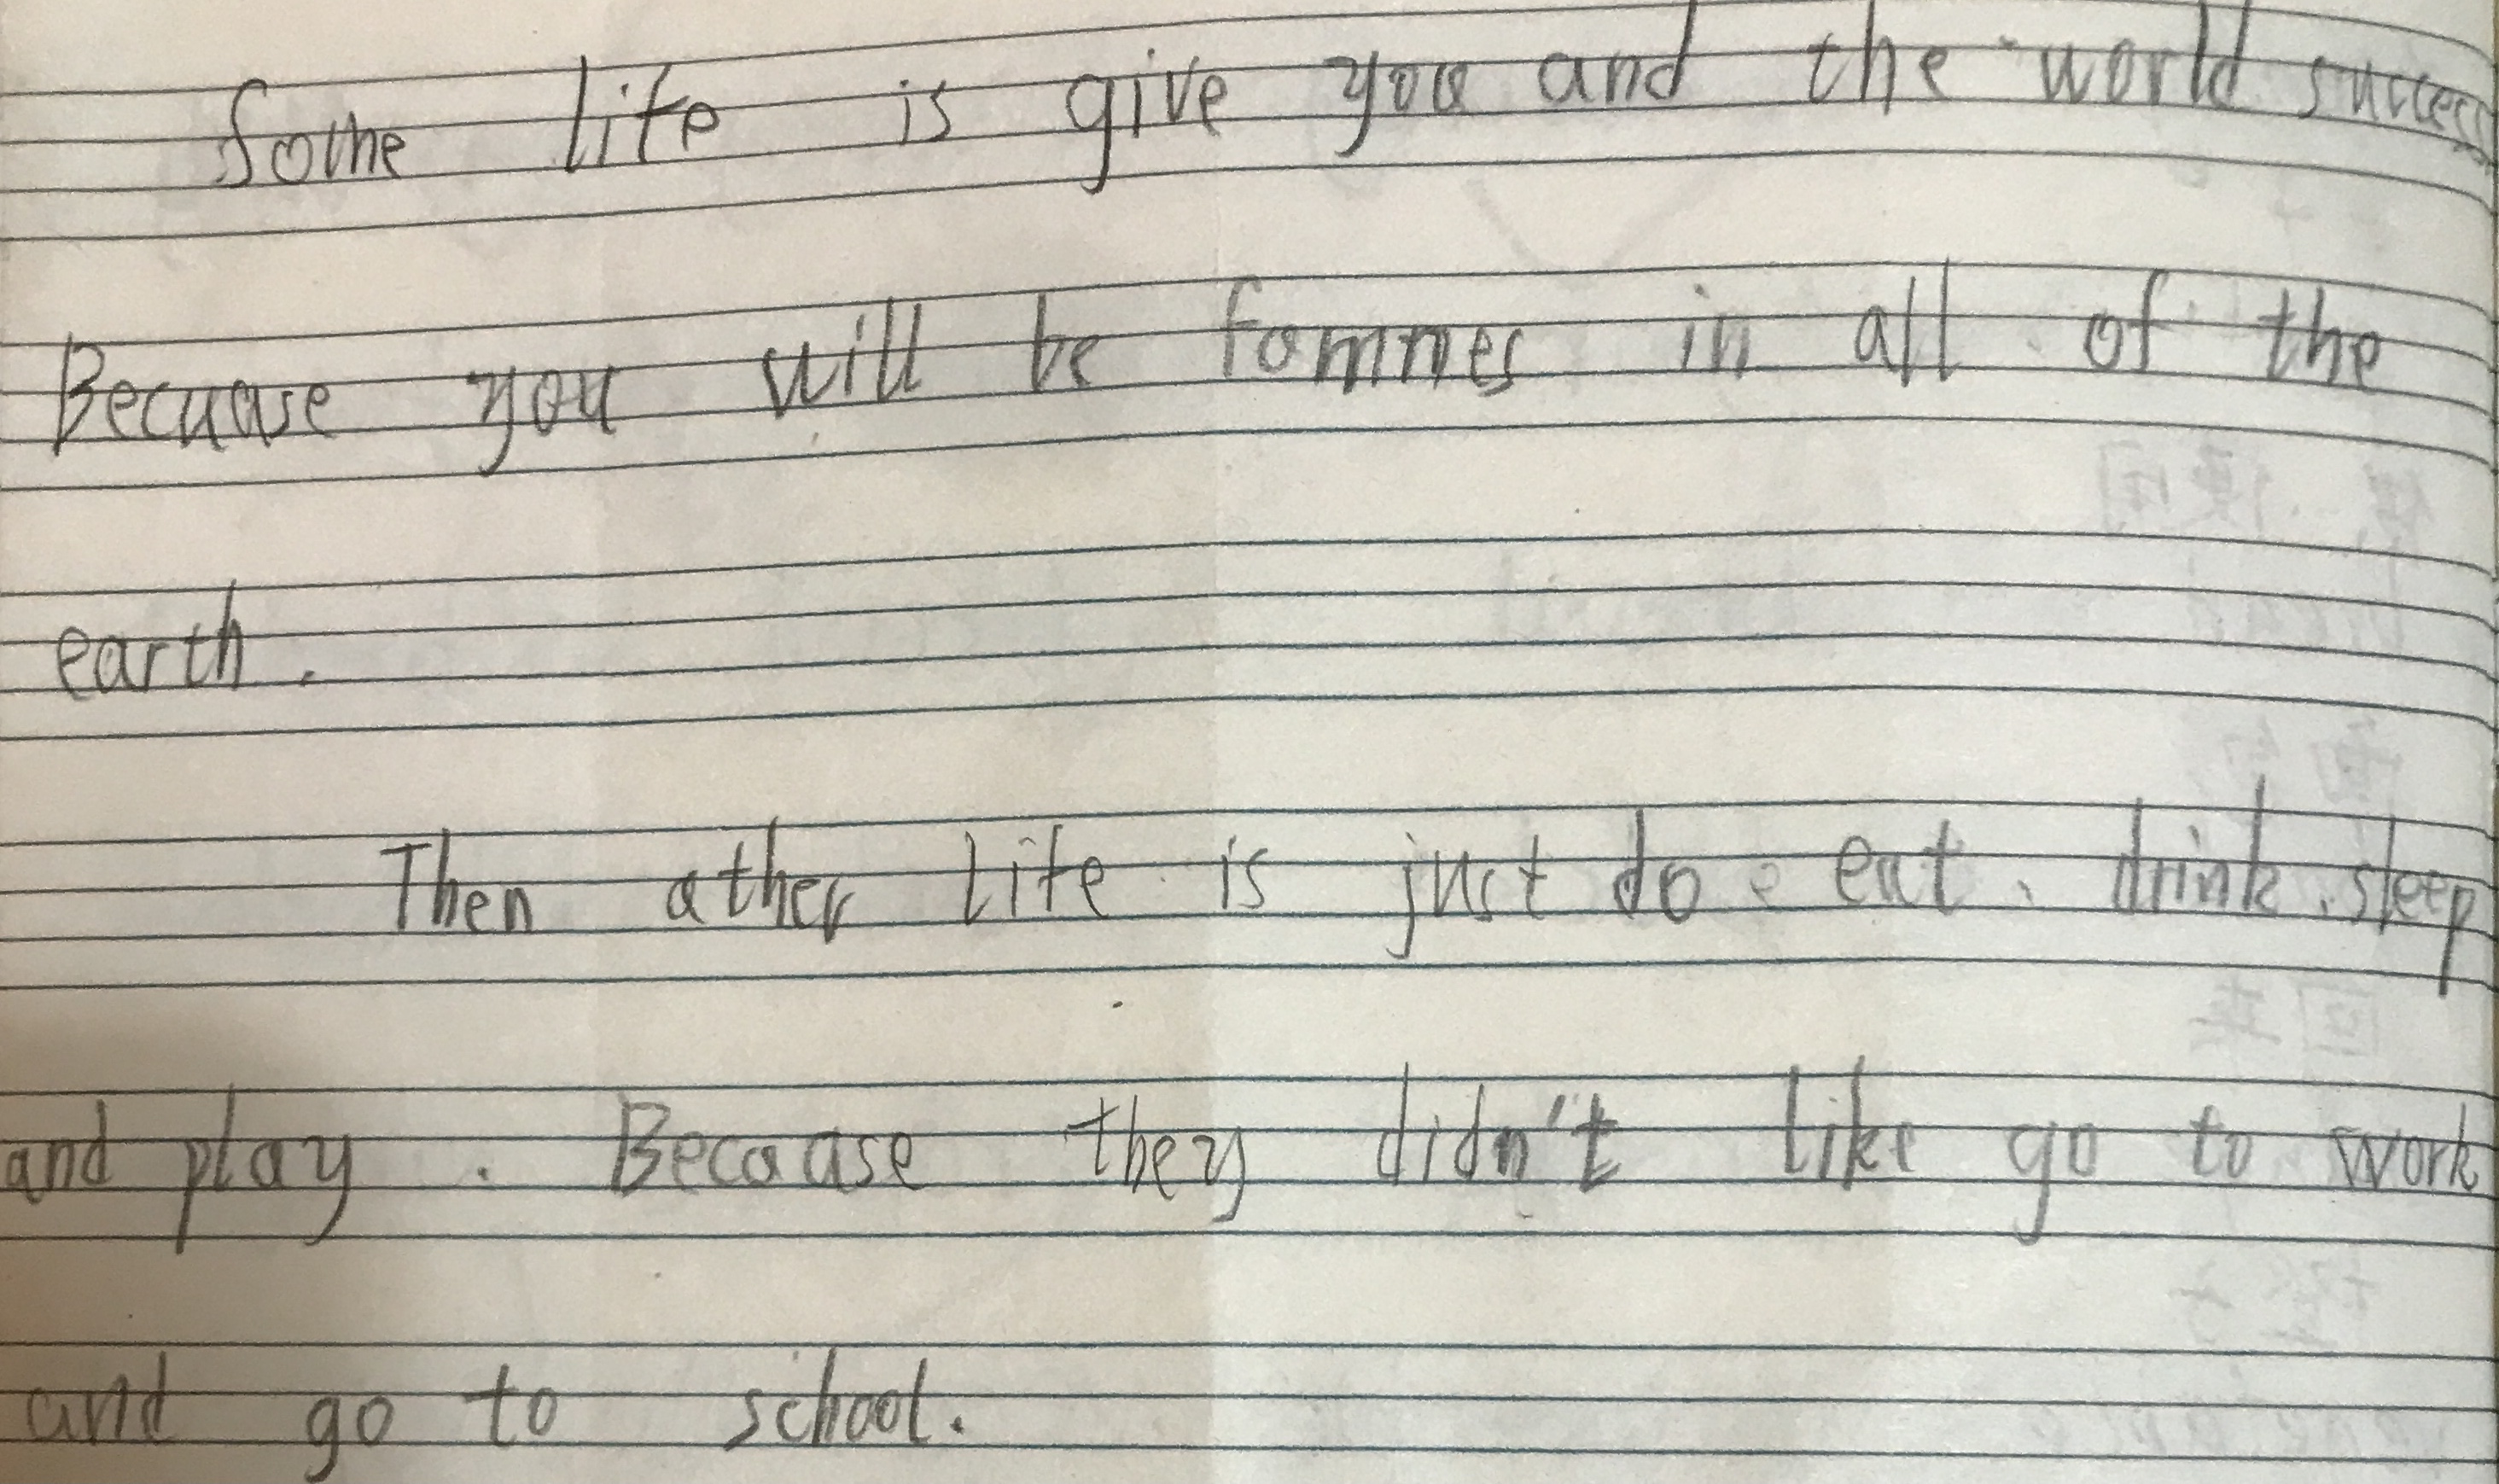 Some life is give you and the world success
Becuause you will be fommes in all of the
earth.
Then ather life is just do eat, drink, sleep
and play. Becaause they didn't like go to work
and go to school.